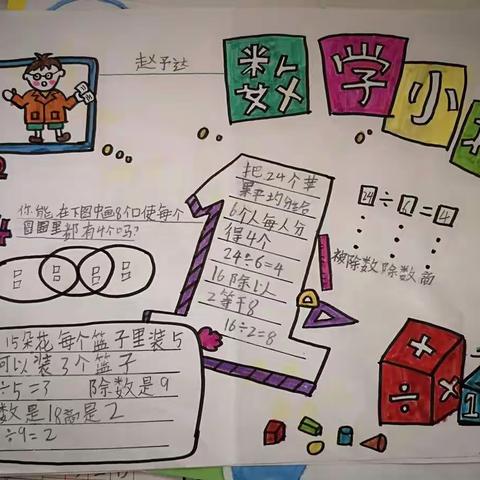 赵予达
数学小
你能在下图中画8个口使每个
圆圈里都有4个吗?
把24个苹
果平均分给
6个人每人分
得4个
24÷6=4
16除以
2等于8
16÷2=8
24÷6=4
被除数 除数 商
15朵花每个篮子里装5
可以装3个篮子
÷5=3 除数是9
数是18商是2
÷9=2
÷ ×
1